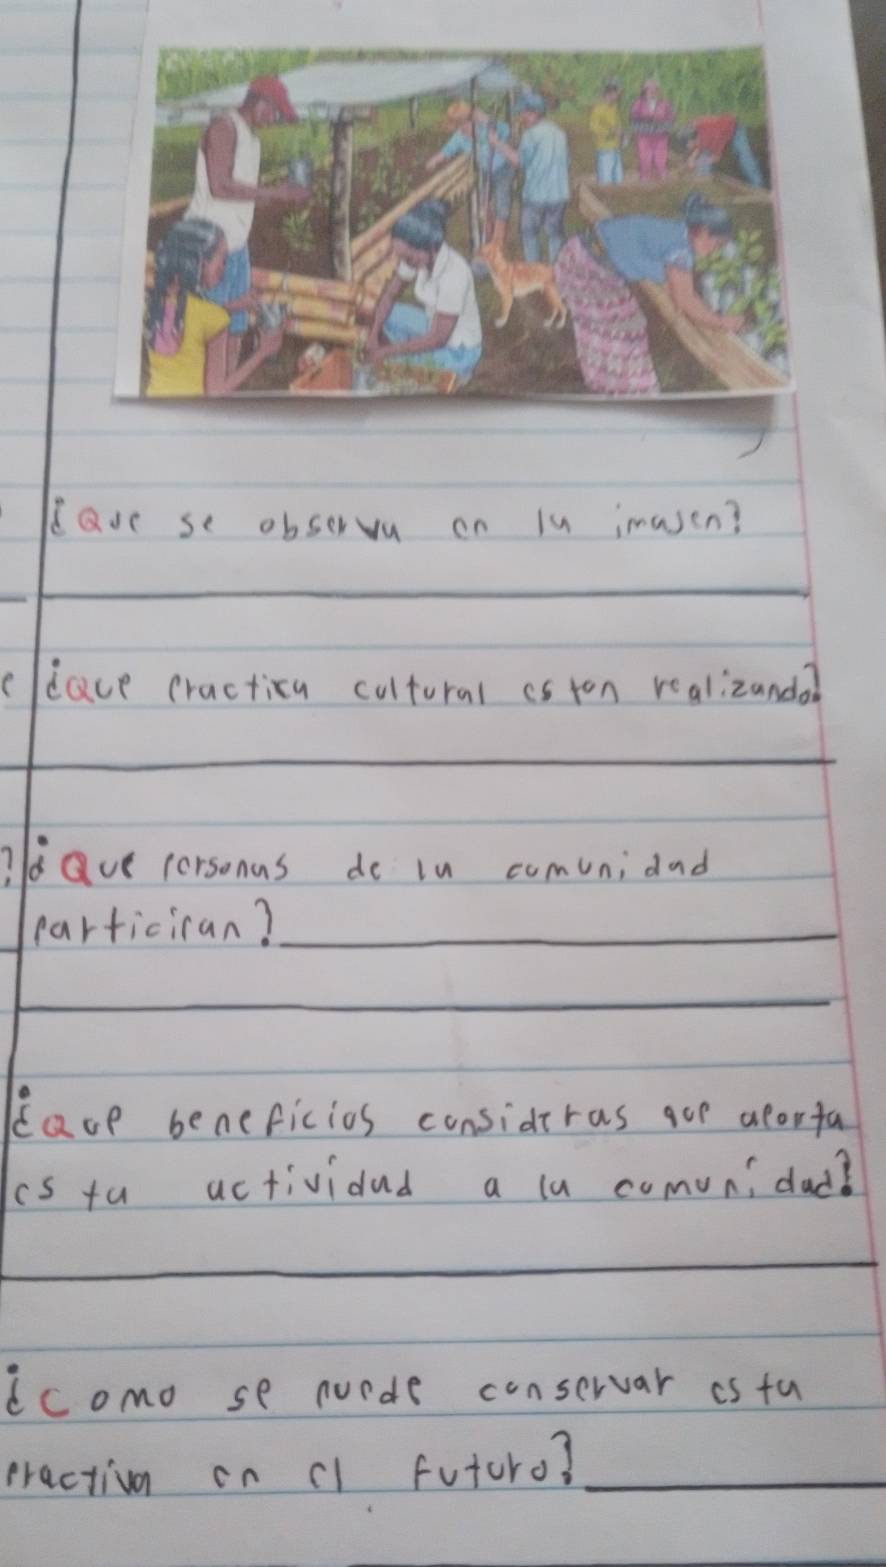 ¿Que se observa en la imajen?
¿Que practica cultural estan realizando?
¿Que personas de la comunidad
participan?
¿Que beneficios consideras que aporta
esta actividad a la comunidad?
¿Como se puede conservar esta
practica en el futuro?